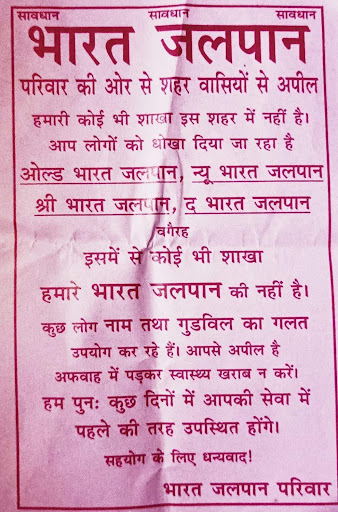 सावधान सावधान सावधान
भारत जलपान
परिवार की ओर से शहर वासियों से अपील
हमारी कोई भी शाखा इस शहर में नहीं है।
आप लोगों को धोखा दिया जा रहा है
ओल्ड भारत जलपान, न्यू भारत जलपान
श्री भारत जलपान, द भारत जलपान
वगैरह
इसमें से कोई भी शाखा
हमारे भारत जलपान की नहीं है।
कुछ लोग नाम तथा गुडविल का गलत
उपयोग कर रहे हैं। आपसे अपील है
अफवाह में पड़कर स्वास्थ्य खराब न करें।
हम पुनः कुछ दिनों में आपकी सेवा में
पहले की तरह उपस्थित होंगे।
सहयोग के लिए धन्यवाद!
भारत जलपान परिवार